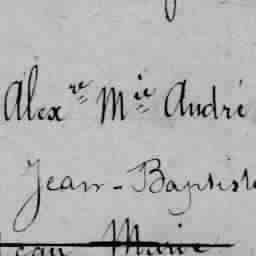 Alexre Mie André
Jean-Baptist
Jean Marie